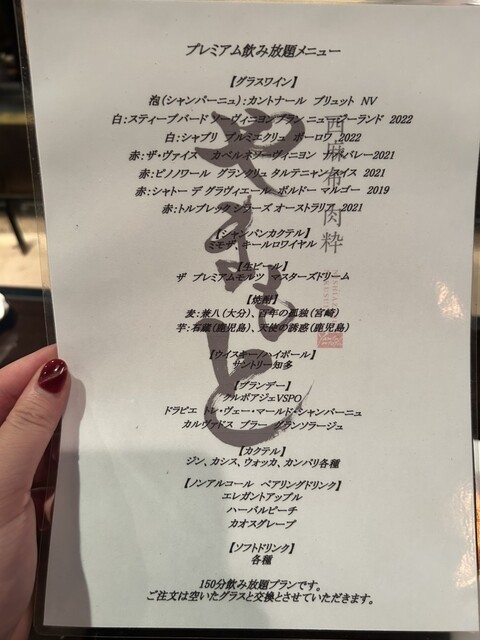 プレミアム飲み放題メニュー
【グラスワイン】
泡(シャンパーニュ):カントナール ブリュット NV
白:スティーブバード ソーヴィニヨンブラン ニュージーランド 2022
白:シャブリ プルミエクリュ ボーロワ 2022
赤:ザ・ヴァイス カベルネソーヴィニヨン ナパバレー2021
赤:ピノノワール グランクリュ タルテニャン スイス 2021
赤:シャトー デ グラヴィエール ボルドー マルゴー 2019
赤:トルブレック シラーズ オーストラリア 2021
【シャンパンカクテル】
ミモザ、キールロワイヤル
【生ビール】
ザ プレミアムモルツ マスターズドリーム
【焼酎】
麦:兼八(大分)、百年の孤独(宮崎)
芋:石蔵(鹿児島)、天使の誘惑(鹿児島)
【ウイスキー/ハイボール】
サントリー知多
【ブランデー】
クルボアジェVSPO
ドラピエ トレ・ヴェー・マールド・シャンパーニュ
カルヴァドス ブラー グランソラージュ
【カクテル】
ジン、カシス、ウォッカ、カンパリ各種
【ノンアルコール ペアリングドリンク】
エレガントアップル
ハーバルピーチ
カオスグレープ
【ソフトドリンク】
各種
150分飲み放題プランです。
ご注文は空いたグラスと交換とさせていただきます。
西麻布 肉粋